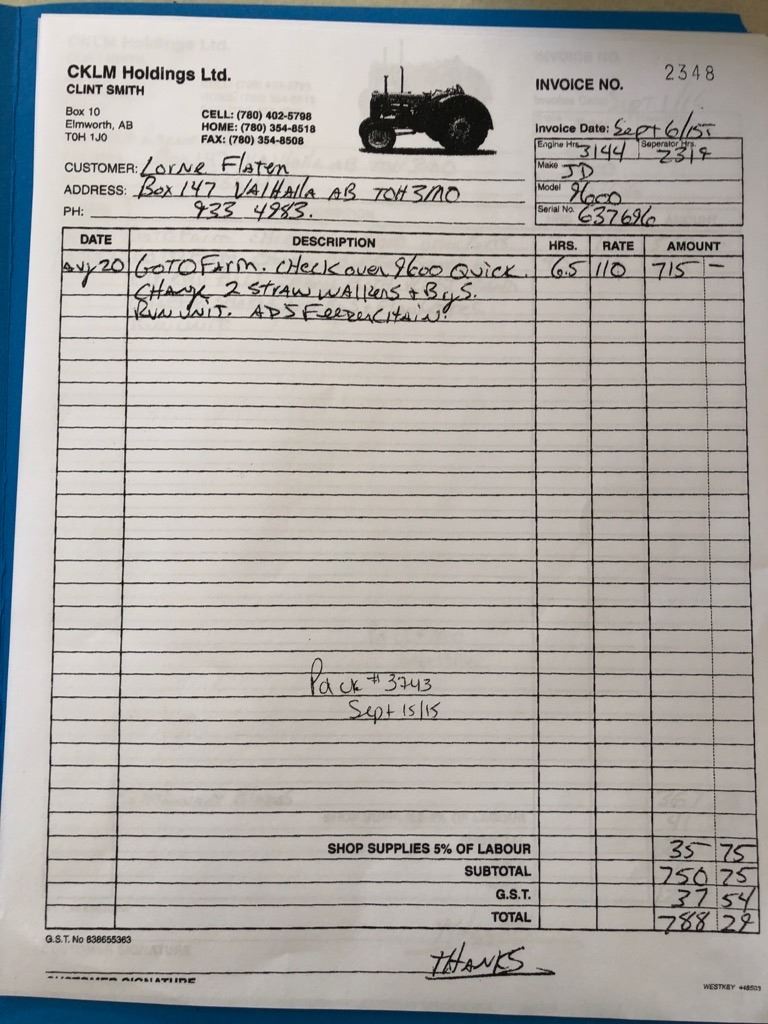 CKLM Holdings Ltd.
CLINT SMITH
Box 10
Elmworth, AB
T0H 1J0
CELL: (780) 402-5798
HOME: (780) 354-8518
FAX: (780) 354-8508
INVOICE NO. 2348
Invoice Date: Sept 6/15
Engine Hrs. 3144 Seperator Hrs. 2319
Make JD
Model 9600
Serial No. 637696
CUSTOMER: Lorne Flaten
ADDRESS: Box 147 VAlHAlla AB TOH 3M0
PH: 933 4983.
DATE DESCRIPTION HRS. RATE AMOUNT
Aug 20 GO TO FArm. CHeck over 9600 Quick. 6.5 110 715 –
CHange 2 STrAW WAlkers + Brgs.
RUN UNIT. ADJ FeeDer CHAIN.
Pack # 3743
Sept 15/15
SHOP SUPPLIES 5% OF LABOUR 35 75
SUBTOTAL 750 75
G.S.T. 37 54
TOTAL 788 29
G.S.T. No 838655363
THANKS
CUSTOMER SIGNATURE
WESTKEY #48503